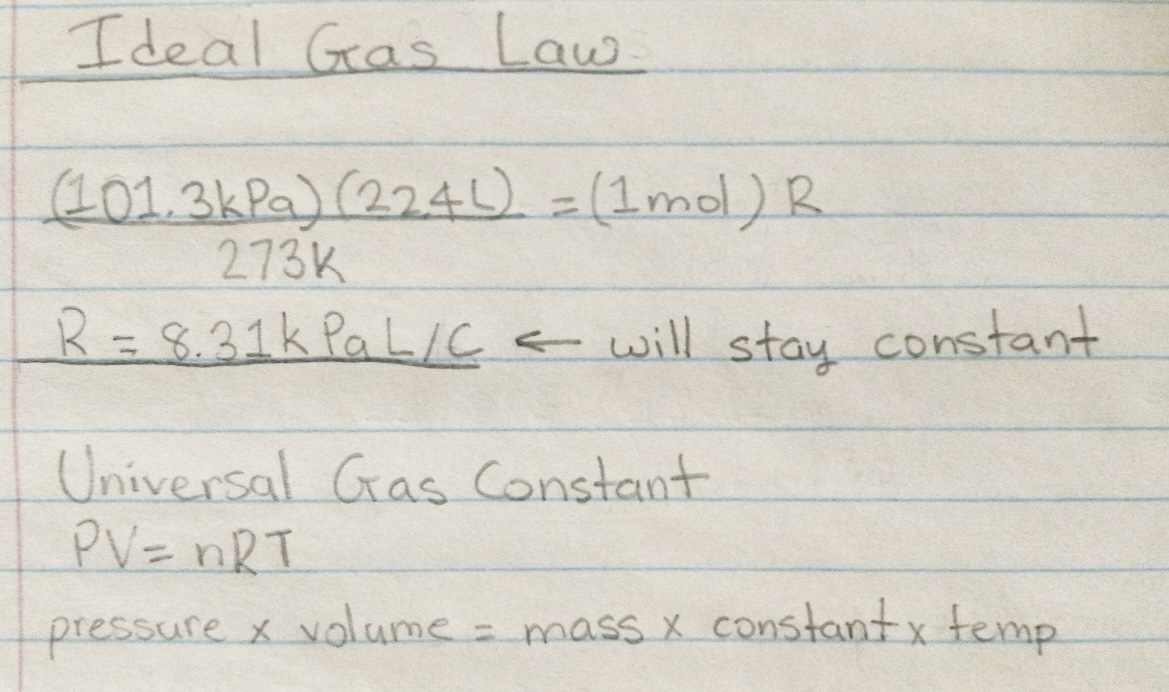 Ideal Gas Law
(101.3kPa)(224L) = (1mol) R
273K
R = 8.31kPaL/C ← will stay constant
Universal Gas Constant
PV=nRT
pressure x volume = mass x constant x temp